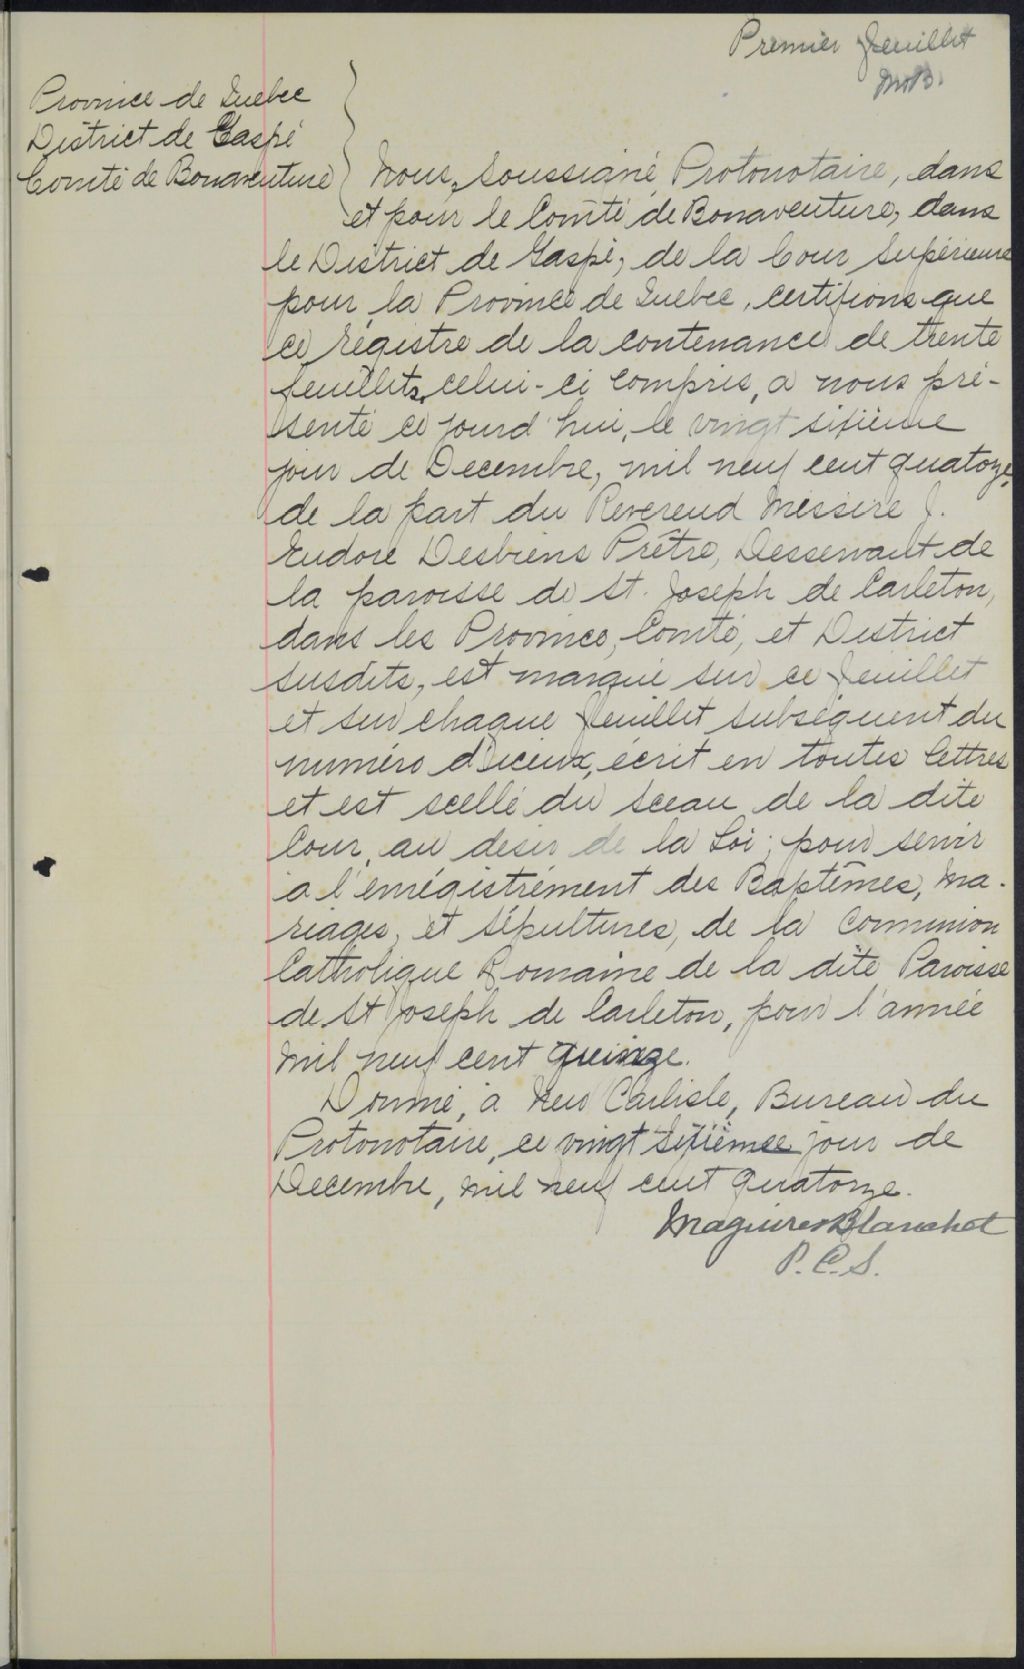 Premier feuillet
M&B.
Province de Quebec
District de Gaspé
Comté de Bonaventure
Nous, Soussigné Protonotaire, dans
et pour le Comté de Bonaventure, dans
le District de Gaspé, de la Cour Supérieure
pour la Province de Quebec, certifions que
ce régistre de la contenance de trente
feuillets, celui-ci compris, a nous pré-
senté ce jourd'hui, le vingt sixième
jour de Decembre, mil neuf cent quatorze,
de la part du Reverend Messire J.
Eudore Desbiens Prêtre, Desservant de
la paroisse de St. Joseph de Carleton,
dans les Province, Comté, et District
susdits, est marqué sur ce feuillet
et sur chaque feuillet subséquent du
numéro d'iceux, écrit en toutes lettres
et est scellé du sceau de la dite
Cour, au desir de la Loi; pour servir
a l'enrégistrement des Baptêmes, Ma-
riages, et Sépultures, de la Communion
Catholique Romaine de la dite Paroisse
de St Joseph de Carleton, pour l'année
mil neuf cent quinze.
Donné, à New Carlisle, Bureau du
Protonotaire, ce vingt sixième jour de
Decembre, mil neuf cent quatorze.
Maguire & Blanchet
P.C.S.